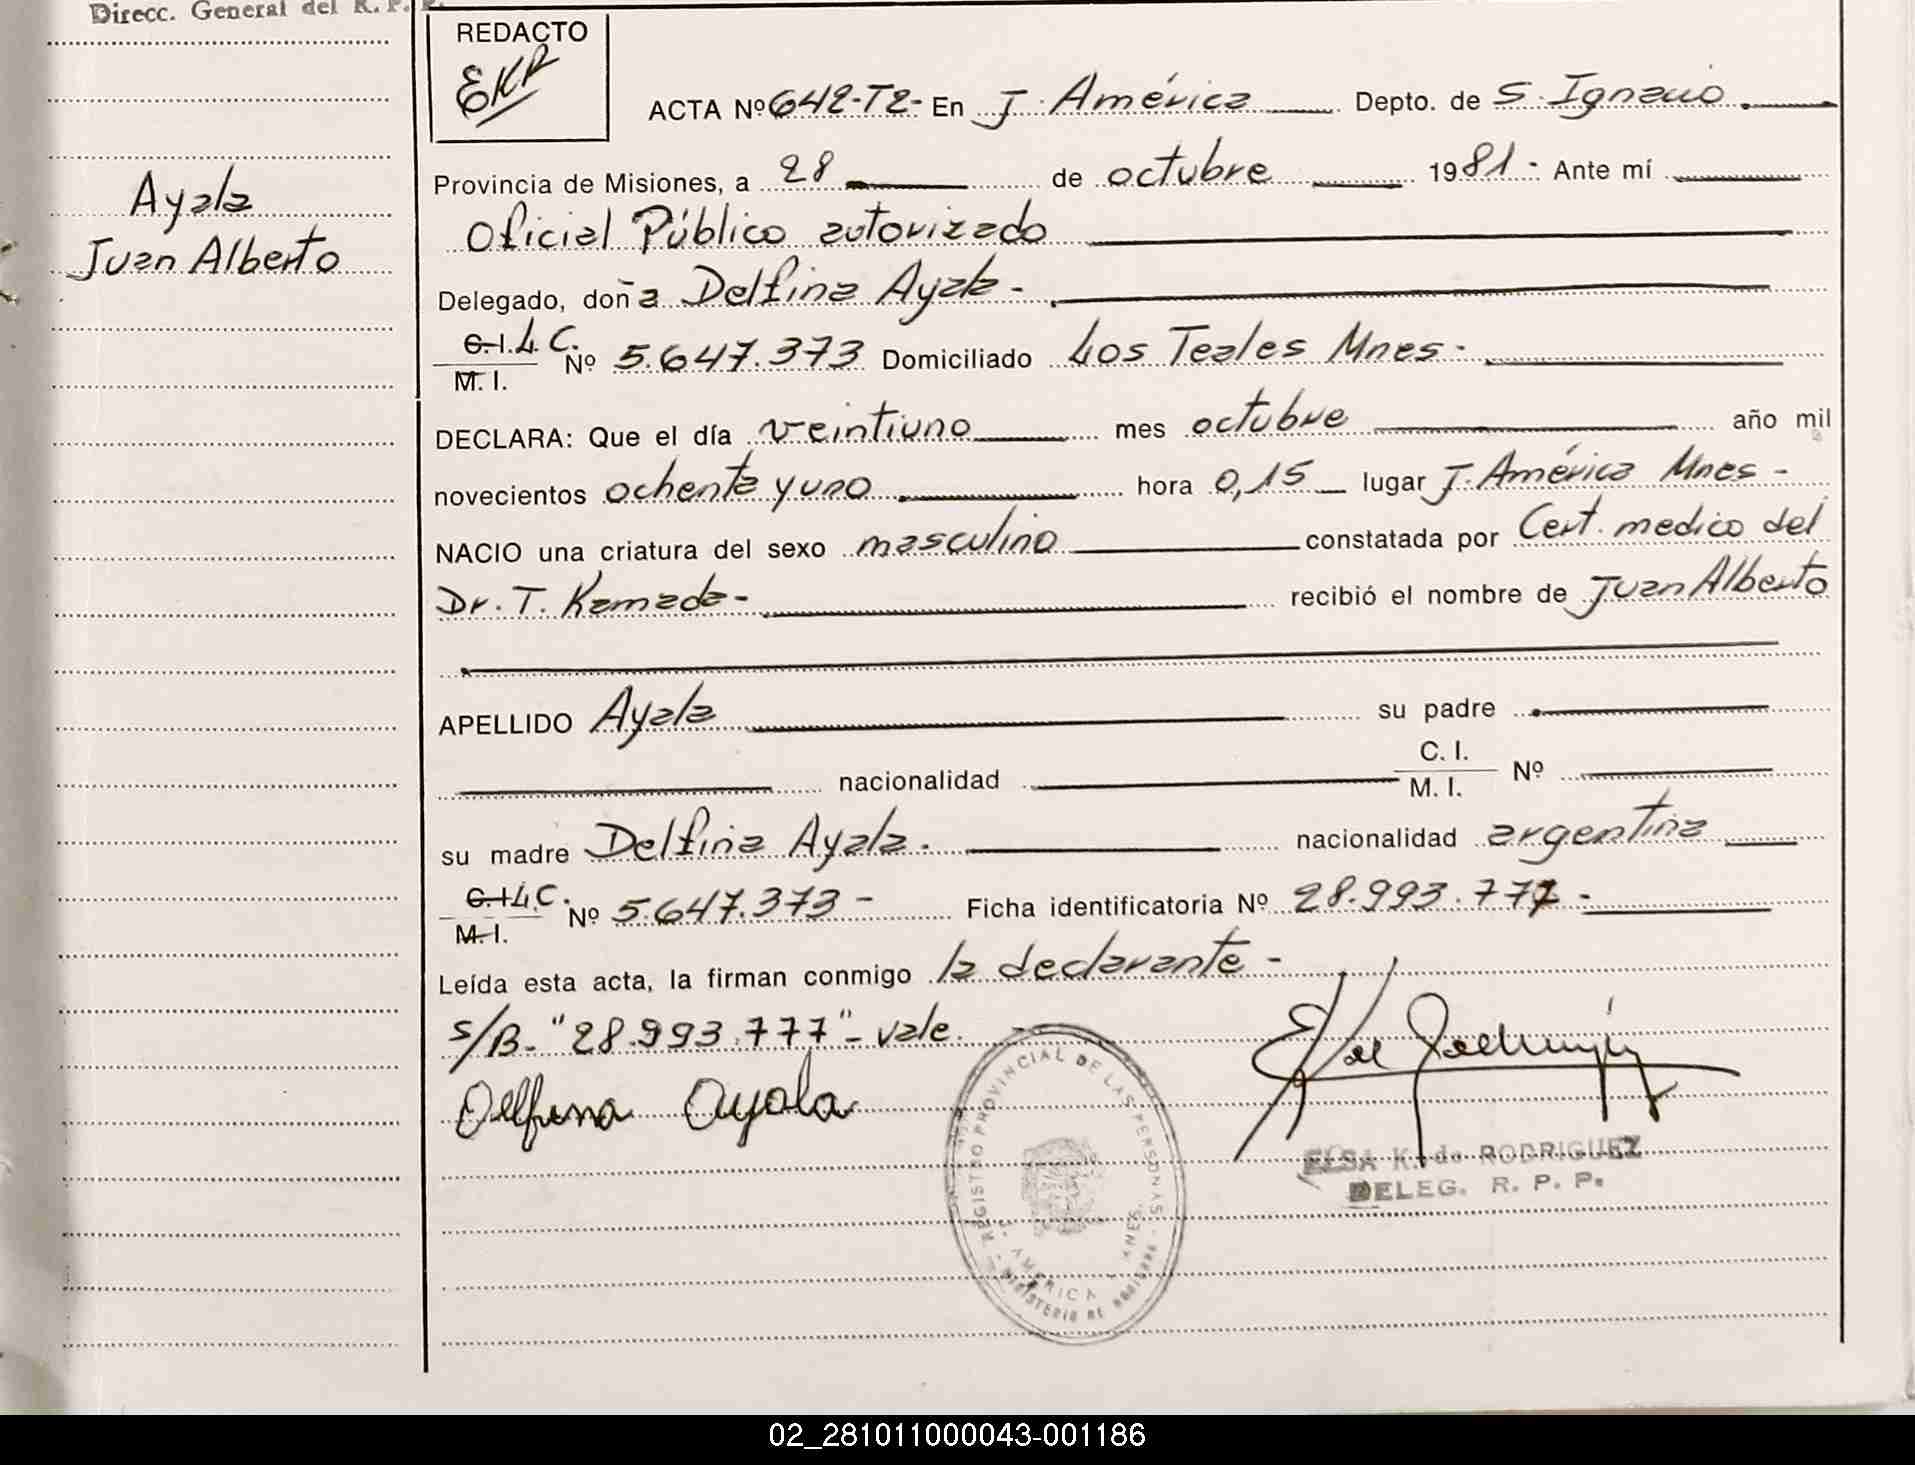 Direcc. General del R. P. P.
REDACTO
EKR
ACTA Nº 642-T2- En J. América Depto. de S. Ignacio
Provincia de Misiones, a 28 de octubre 1981- Ante mí
Ayala
Juan Alberto
Oficial Público autorizado
Delegado, doña Delfina Ayala -
C.I. L.C. Nº 5.647.373 Domiciliado Los Teales Mnes-
M. I.
DECLARA: Que el día veintiuno mes octubre año mil
novecientos ochenta y uno hora 0,15 lugar J. América Mnes -
NACIO una criatura del sexo masculino constatada por Cert. medico del
Dr. T. Kamada - recibió el nombre de Juan Alberto
APELLIDO Ayala su padre
nacionalidad C. I. Nº
M. I.
su madre Delfina Ayala. nacionalidad argentina
C.I. L.C. Nº 5.647.373 - Ficha identificatoria Nº 28.993.777 -
M. I.
Leída esta acta, la firman conmigo la declarante -
s/B- "28.993.777" - vale.
Delfina Ayala
REGISTRO PROVINCIAL DE LAS PERSONAS - MINISTERIO DE
AMERICA MNES.
ELSA K. de RODRIGUEZ
DELEG. R. P. P.
02_281011000043-001186